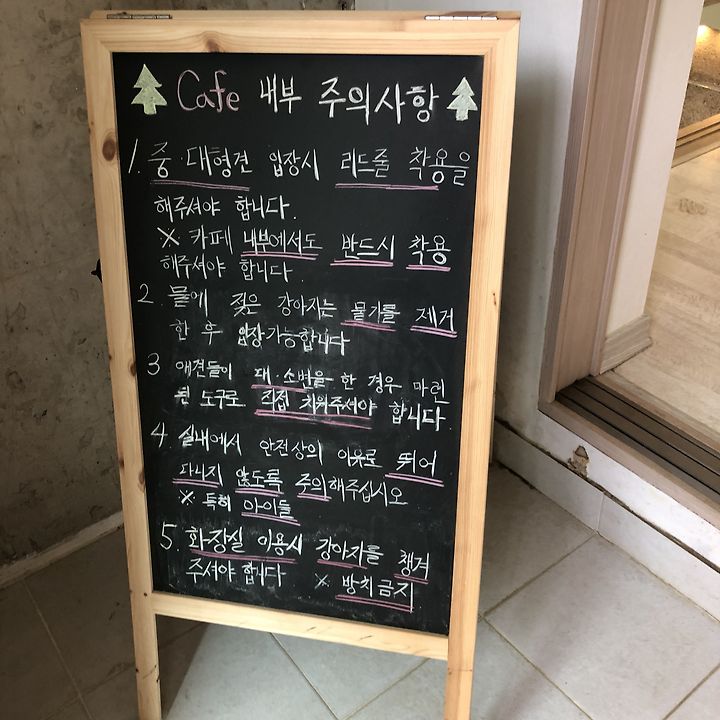 Cafe 내부 주의사항
1. 중·대형견 입장시 리드줄 착용을
해주셔야 합니다.
※ 카페 내부에서도 반드시 착용
해주셔야 합니다
2. 물에 젖은 강아지는 물기를 제거
한 후 입장가능합니다
3 애견들이 대·소변을 한 경우 마련
된 도구로 직접 치워주셔야 합니다
4. 실내에서 안전상의 이유로 뛰어
다니지 않도록 주의해주십시오
※ 특히 아이들
5. 화장실 이용시 강아지를 챙겨
주셔야 합니다 ※ 방치금지